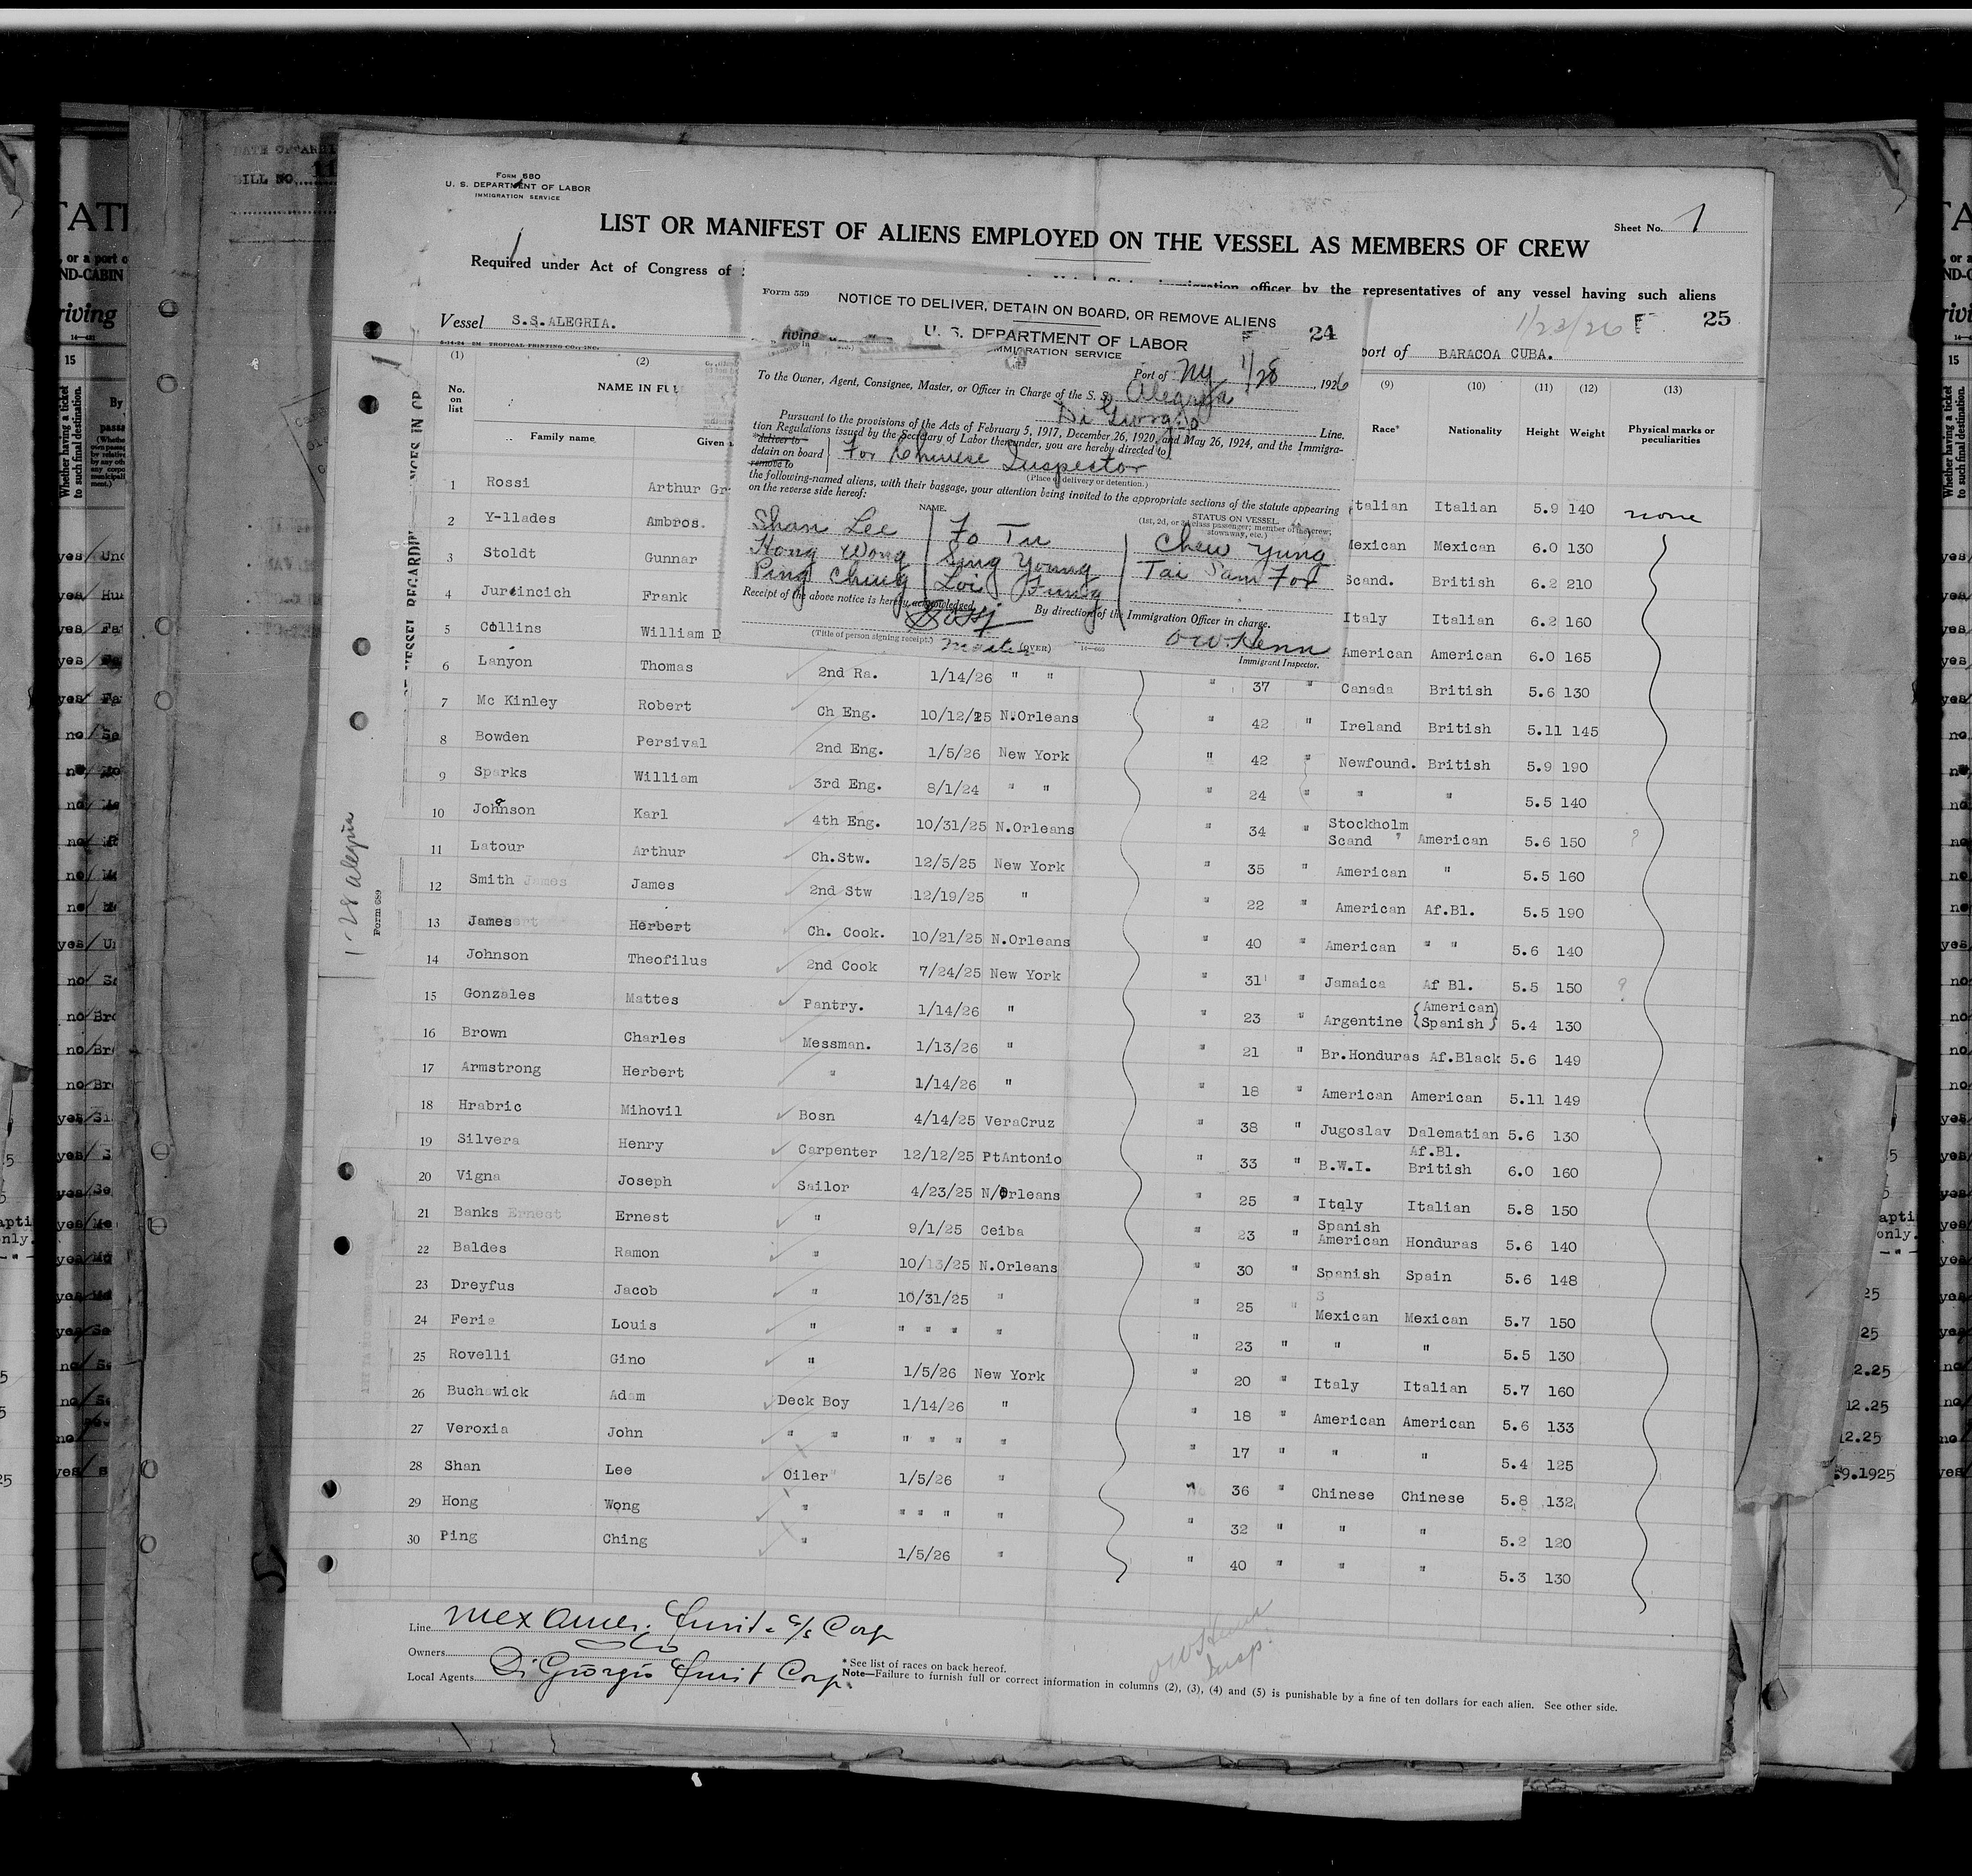 Form 680
U. S. DEPARTMENT OF LABOR
IMMIGRATION SERVICE
Sheet No. 1
LIST OR MANIFEST OF ALIENS EMPLOYED ON THE VESSEL AS MEMBERS OF CREW
Required under Act of Congress of
immigration officer by the representatives of any vessel having such aliens
Vessel S.S. ALEGRIA.
1/23/26 F 25
port of BARACOA CUBA.
Form 559
NOTICE TO DELIVER, DETAIN ON BOARD, OR REMOVE ALIENS
U. S. DEPARTMENT OF LABOR 24
IMMIGRATION SERVICE
Port of NY 1/28, 1926
To the Owner, Agent, Consignee, Master, or Officer in Charge of the S. S. Alegria
Di Giorgio Line.
Pursuant to the provisions of the Acts of February 5, 1917, December 26, 1920, and May 26, 1924, and the Immigra-
tion Regulations issued by the Secretary of Labor thereunder, you are hereby directed to
deliver to
detain on board For Chinese Inspector
remove to
(Place of delivery or detention.)
the following-named aliens, with their baggage, your attention being invited to the appropriate sections of the statute appearing
on the reverse side hereof:
NAME. STATUS ON VESSEL
(1st, 2d, or 3d class passenger; member of the crew; stowaway, etc.)
Shan Lee Fo Tu Chew Yung
Hong Wong Sing Young Tai Sam Foo
Ping Ching Loi Fung
Receipt of the above notice is hereby acknowledged.
By direction of the Immigration Officer in charge.
(Title of person signing receipt.) (OVER) 14—669
O W. Henn
Immigrant Inspector.
(1) (2) (9) (10) (11) (12) (13)
No. on list NAME IN FULL Race* Nationality Height Weight Physical marks or peculiarities
Family name Given
1 Rossi Arthur Italian Italian 5.9 140 none
2 Y-llades Ambros. Mexican Mexican 6.0 130
3 Stoldt Gunnar Scand. British 6.2 210
4 Jureincich Frank Italy Italian 6.2 160
5 Collins William D American American 6.0 165
6 Lanyon Thomas 2nd Ra. 1/14/26 " " " 37 " Canada British 5.6 130
7 Mc Kinley Robert Ch Eng. 10/12/25 N.Orleans " 42 " Ireland British 5.11 145
8 Bowden Persival 2nd Eng. 1/5/26 New York " 42 " Newfound. British 5.9 190
9 Sparks William 3rd Eng. 8/1/24 " " " 24 " " " 5.5 140
10 Johnson Karl 4th Eng. 10/31/25 N.Orleans " 34 " Stockholm Scand American 5.6 150 ?
11 Latour Arthur Ch.Stw. 12/5/25 New York " 35 " American " 5.5 160
12 Smith James 2nd Stw 12/19/25 " " 22 " American Af.Bl. 5.5 190
13 James Herbert Ch. Cook. 10/21/25 N.Orleans " 40 " American " " 5.6 140
14 Johnson Theofilus 2nd Cook 7/24/25 New York " 31 " Jamaica Af Bl. 5.5 150 ?
15 Gonzales Mattes Pantry. 1/14/26 " " 23 " Argentine (American) (Spanish) 5.4 130
16 Brown Charles Messman. 1/13/26 " " 21 " Br.Honduras Af.Black 5.6 149
17 Armstrong Herbert " 1/14/26 " " 18 " American American 5.11 149
18 Hrabric Mihovil Bosn 4/14/25 VeraCruz " 38 " Jugoslav Dalematian 5.6 130
19 Silvera Henry Carpenter 12/12/25 PtAntonio " 33 " B.W.I. Af.Bl. British 6.0 160
20 Vigna Joseph Sailor 4/23/25 N/Orleans " 25 " Italy Italian 5.8 150
21 Banks Ernest " 9/1/25 Ceiba " 23 " Spanish American Honduras 5.6 140
22 Baldes Ramon " 10/13/25 N.Orleans " 30 " Spanish Spain 5.6 148
23 Dreyfus Jacob " 10/31/25 " " 25 " Mexican Mexican 5.7 150
24 Feria Louis " " " " " " 23 " " " 5.5 130
25 Rovelli Gino " 1/5/26 New York " 20 " Italy Italian 5.7 160
26 Buchewick Adam Deck Boy 1/14/26 " " 18 " American American 5.6 133
27 Veroxia John " " " " " " " 17 " " " 5.4 125
28 Shan Lee Oiler 1/5/26 " " 36 " Chinese Chinese 5.8 132
29 Hong Wong " " " " " " 32 " " " 5.2 120
30 Ping Ching " 1/5/26 " " 40 " " " 5.3 130
Line Mex Amer. Fruit & S/S Corp
Owners do
Local Agents Di Giorgio Fruit Corp.
* See list of races on back hereof.
Note—Failure to furnish full or correct information in columns (2), (3), (4) and (5) is punishable by a fine of ten dollars for each alien. See other side.
O W Henn
Insp.
1-28 Alegria
Form 689